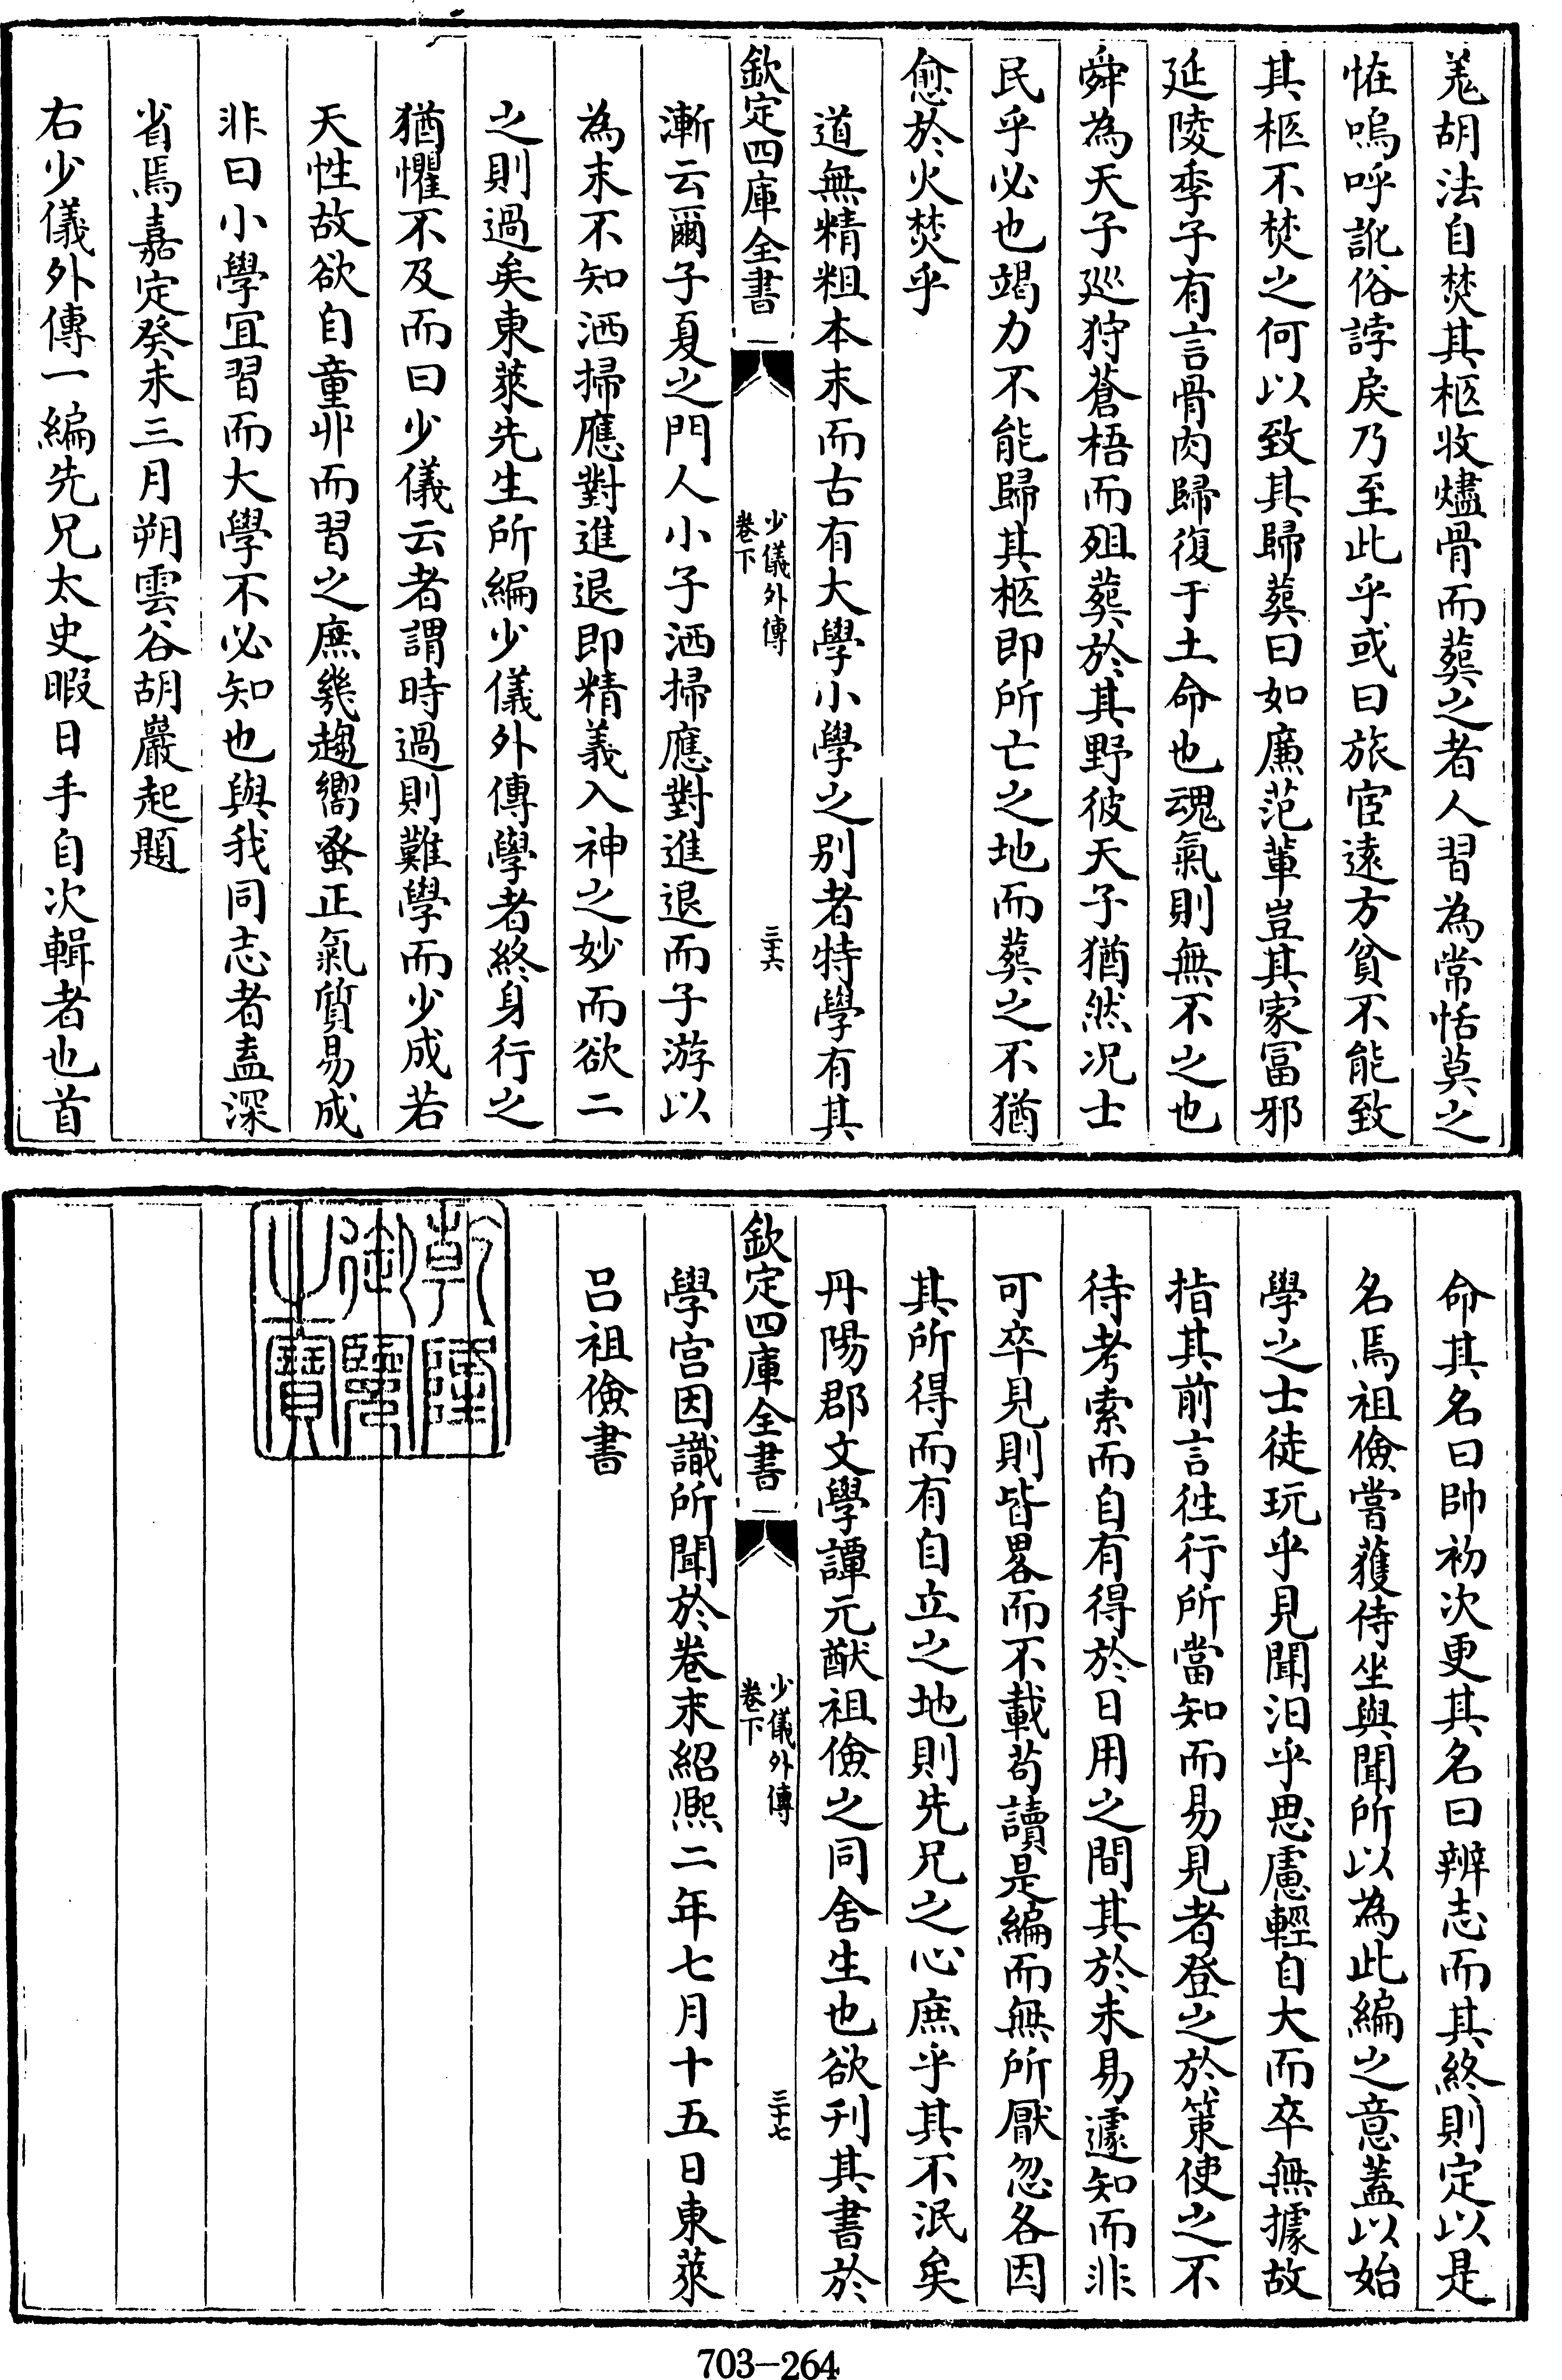 羗胡法自焚其柩收燼骨而葬之者人習為常恬莫之
恠嗚呼訛俗誖戾乃至此乎或曰旅宦遠方貧不能致
其柩不焚之何以致其歸葬曰如廉范輩豈其家冨邪
延陵季子有言骨肉歸復于土命也魂氣則無不之也
舜為天子廵狩蒼梧而殂葬於其野彼天子猶然况士
民乎必也竭力不能歸其柩即所亡之地而葬之不猶
愈於火焚乎
道無精粗本末而古有大學小學之别者特學有其
欽定四庫全書
少儀外傳
卷下
三六
漸云爾子夏之門人小子洒掃應對進退而子游以
為末不知洒掃應對進退即精義入神之妙而欲二
之則過矣東萊先生所編少儀外傳學者終身行之
猶懼不及而曰少儀云者謂時過則難學而少成若
天性故欲自童丱而習之庶幾趨嚮蚤正氣質易成
非曰小學宜習而大學不必知也與我同志者盍深
省焉嘉定癸未三月朔雲谷胡巖起題
右少儀外傳一編先兄太史暇日手自次輯者也首
命其名曰帥初次更其名曰辨志而其終則定以是
名焉祖儉嘗獲侍坐與聞所以為此編之意蓋以始
學之士徒玩乎見聞汩乎思慮輕自大而卒無據故
指其前言徃行所當知而易見者登之於策使之不
待考索而自有得於日用之間其於未易遽知而非
可卒見則皆畧而不載茍讀是編而無所厭忽各因
其所得而有自立之地則先兄之心庶乎其不泯矣
丹陽郡文學譚元猷祖儉之同舍生也欲刋其書於
欽定四庫全書
少儀外傳
卷下
三十七
學宫因識所聞於卷末紹熙二年七月十五日東萊
吕祖儉書
乾隆
御覽
之寶
703-264